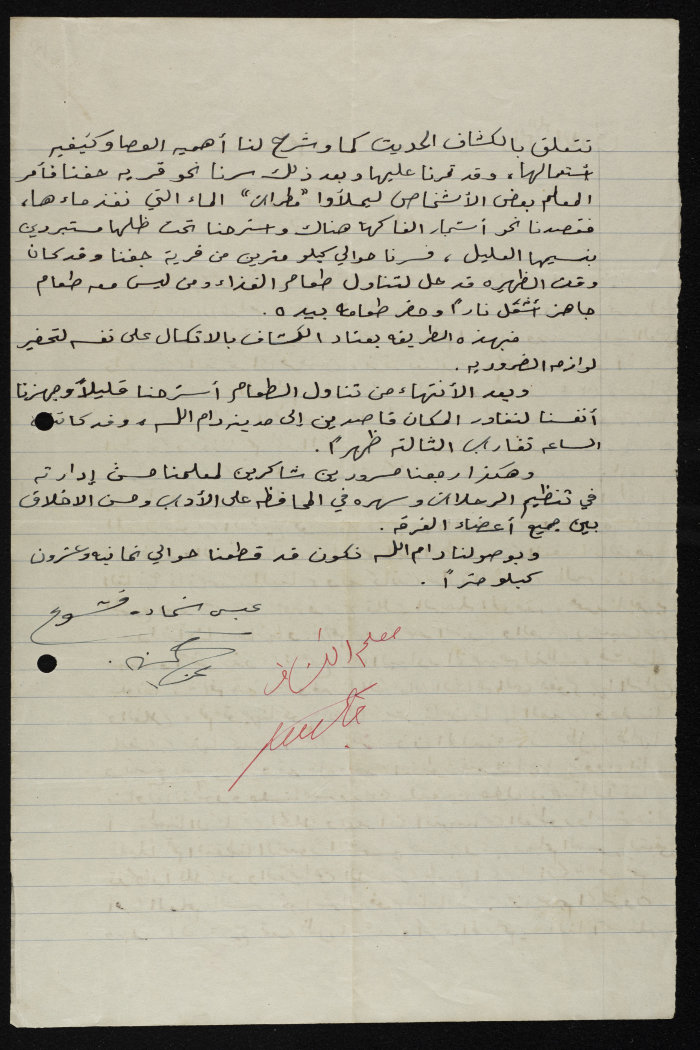 تتعلق بالكشاف الحديث كما وشرح لنا أهميه العصا وكيفيه
أستعمالها، وقد تمرنا عليها وبعد ذلك سرنا نحو قريه جفنا فأمر
المعلم بعض الأشخاص ليملأوا "مطرات" الماء التي نفذ ماءها،
فقصدنا نحو أشجار الفاكهة هناك واسترحنا تحت ظلها مستبردين
بنسيمها العليل، فسرنا حوالي كيلو مترين من قرية جفنا وقد كان
وقت الظهيره قد حل لتناول طعام الغذاء ومن ليس معه طعام
جاهز أشعل ناراً وحضر طعامه بيده.
فبهذه الطريقه يعتاد الكشاف بالاتكال على نفسه لتحضير
لوازمه الضروريه.
وبعد الأنتهاء من تناول الطعام أسترحنا قليلاً وجهزنا
أنفسنا لنغادر المكان قاصدين إلى مدينة رام الله، وقد كانت
الساعه تقارب الثالثة ظهراً.
وهكذا رجعنا مسرورين شاكرين لمعلمنا حسن إدارته
في تنظيم الرحلات وسهره في المحافظه على الأداب وحسن الاخلاق
بين جميع أعضاء الفرقه.
وبوصولنا رام الله نكون قد قطعنا حوالي ثمانيه وعشرون
كيلو متراً.
عيسى شحاده
معلم الكشاف